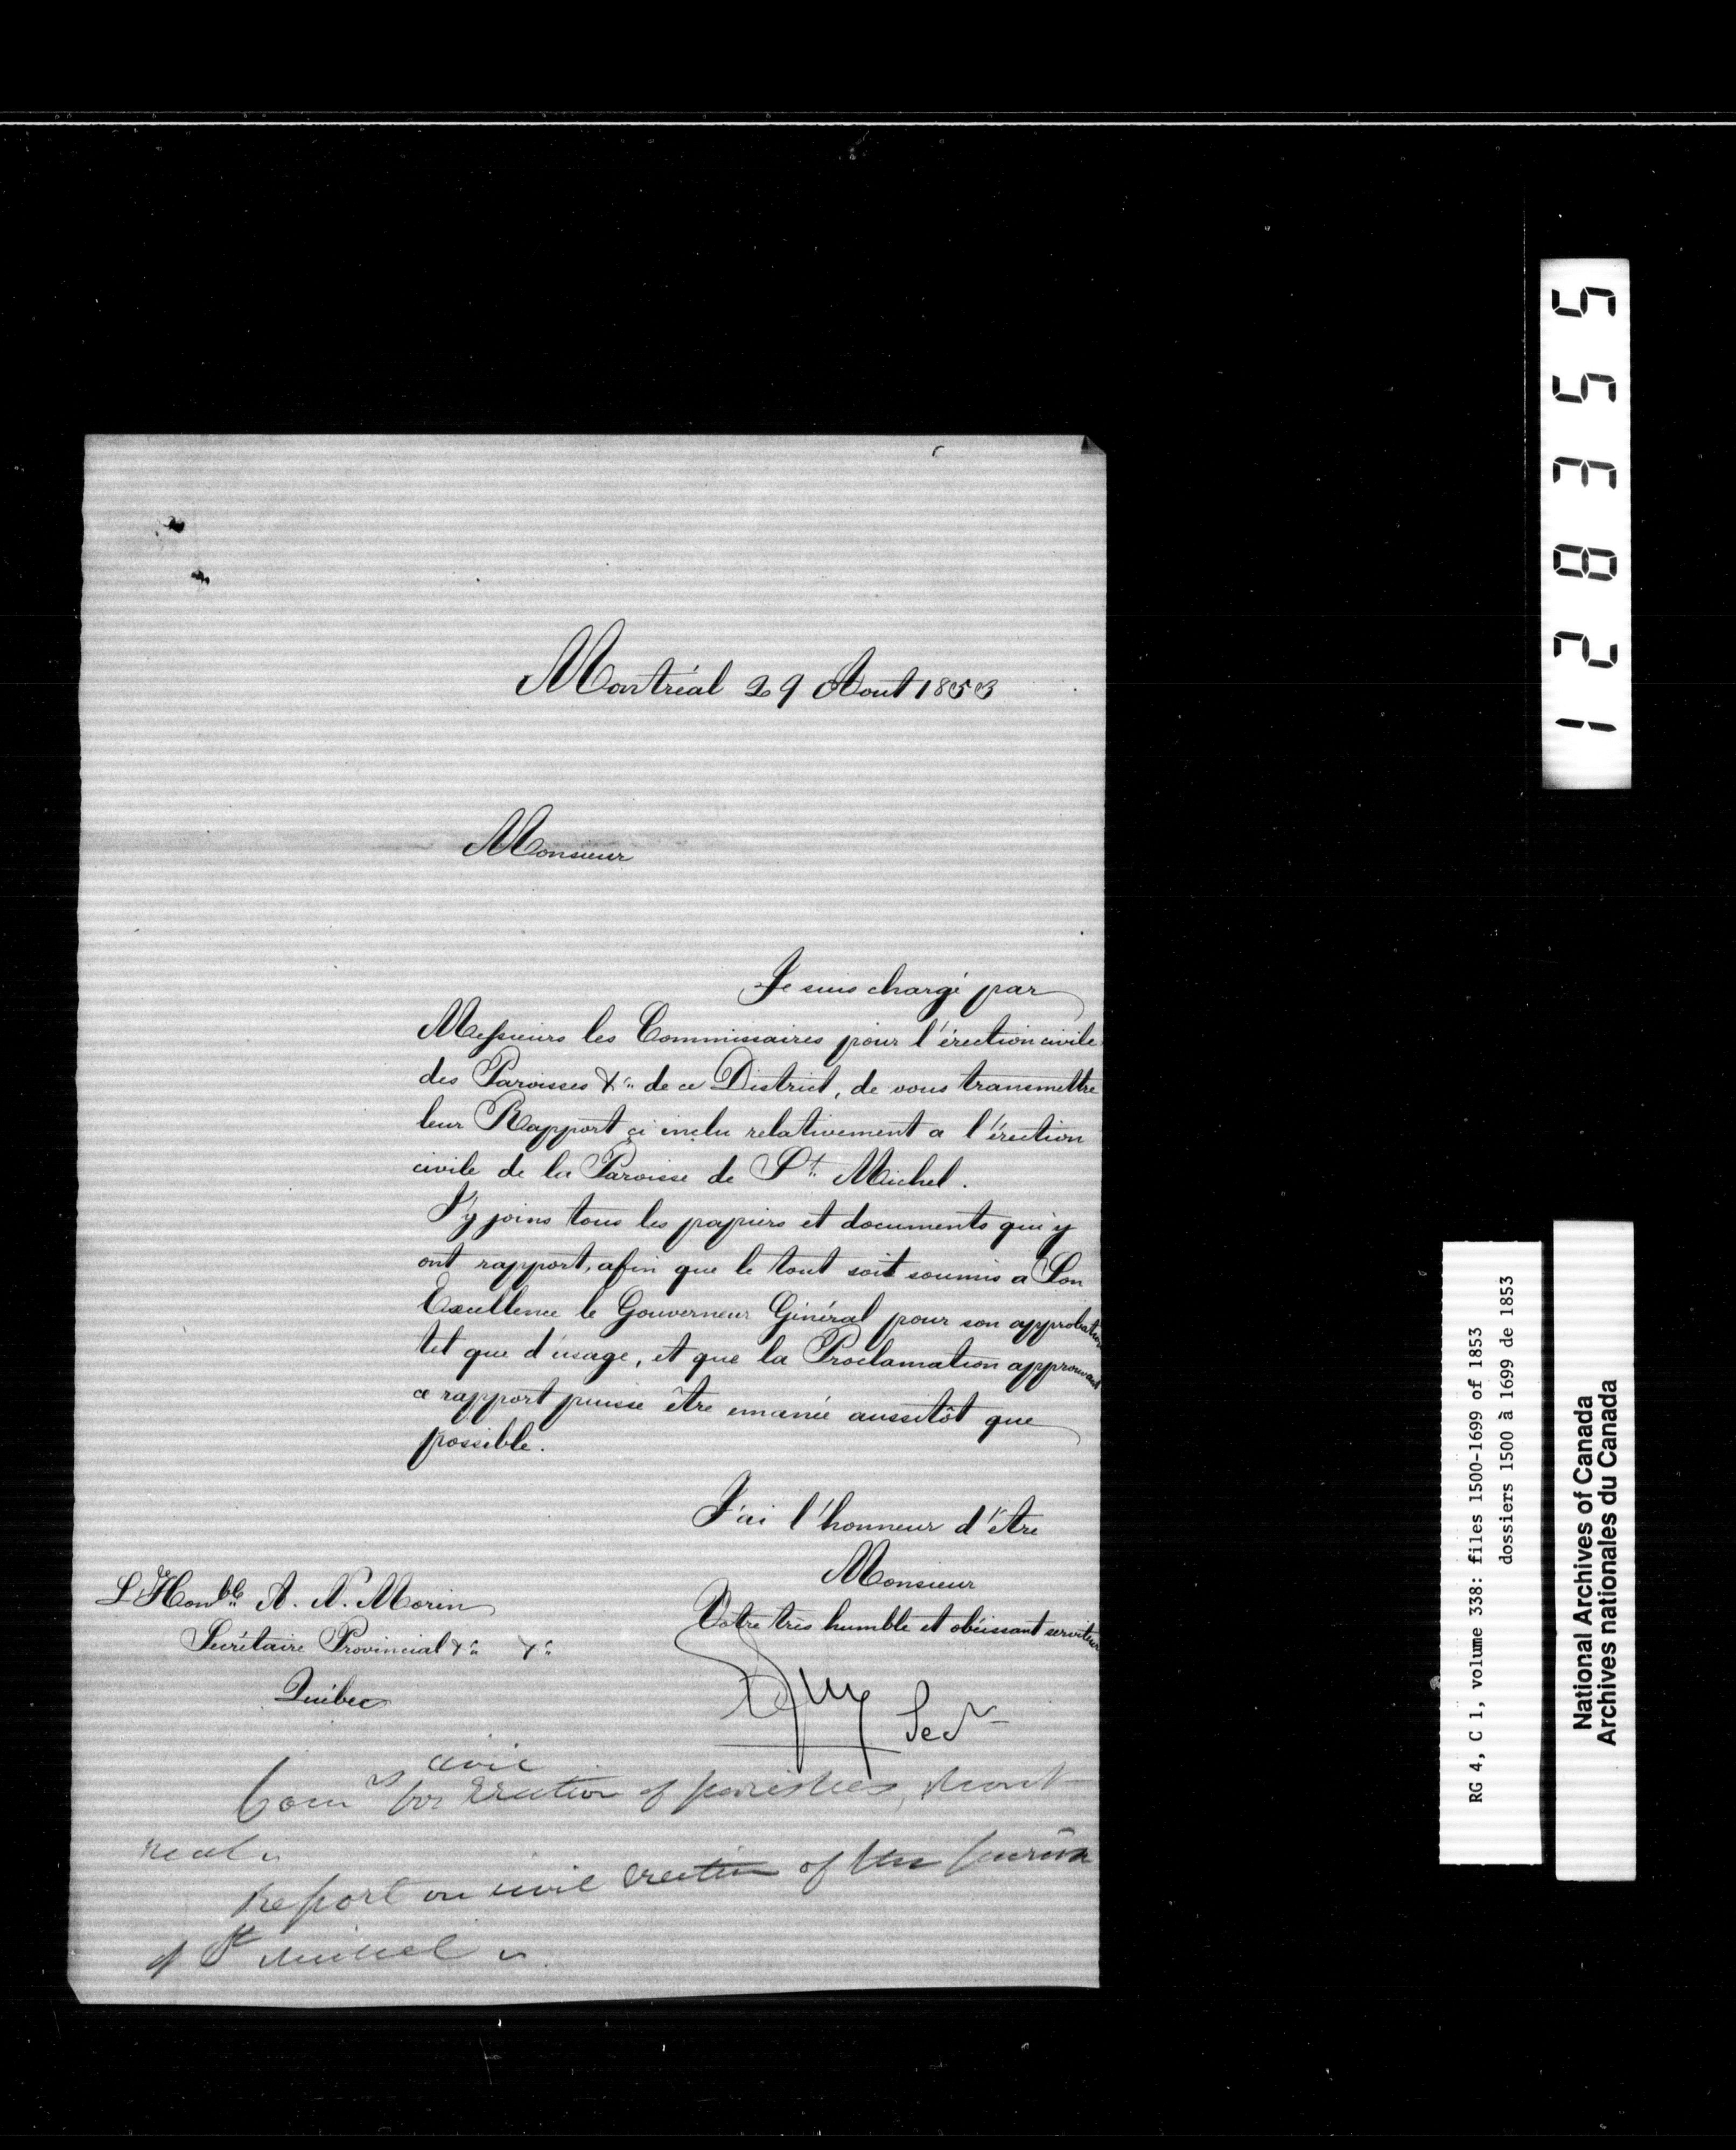 Montréal 29 Aout 1853
Monsieur
Je suis chargé par
Messieurs les Commissaires pour l'érection civile
des Paroisses &c. de ce District, de vous transmettre
leur Rapport çi inclu relativement a l'érection
civile de la Paroisse de St. Michel.
J'y joins tous les papiers et documents qui y
ont rapport, afin que le tout soit soumis a Son
Excellence le Gouverneur Général pour son approbation
tel que d'usage, et que la Proclamation approuvant
ce rapport puisse être emanée aussitôt que
possible.
J'ai l'honneur d'être
Monsieur
Votre très humble et obéissant serviteur
Secr
L'Honble. A. N. Morin
Secrétaire Provincial &c. &c.
Québec
civil
Comrs for Erection of parishes, Mont
real
Report on civil erection of the parish
of St Michel
128355
RG 4, C 1, volume 338: files 1500-1699 of 1853
dossiers 1500 à 1699 de 1853
National Archives of Canada
Archives nationales du Canada